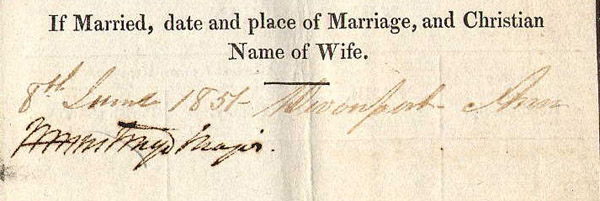 If Married, date and place of Marriage, and Christian
Name of Wife.
8th June 1851 Devonport Ann
Major.